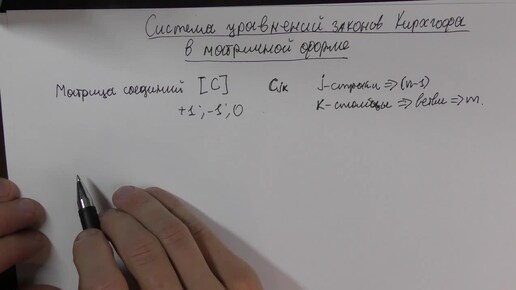 Система уравнений законов Кирхгофа
в матричной форме
Матрица соединий [C] Cjk j-строки => (n-1)
+1; -1; 0 K-столбцы => ветви => m.